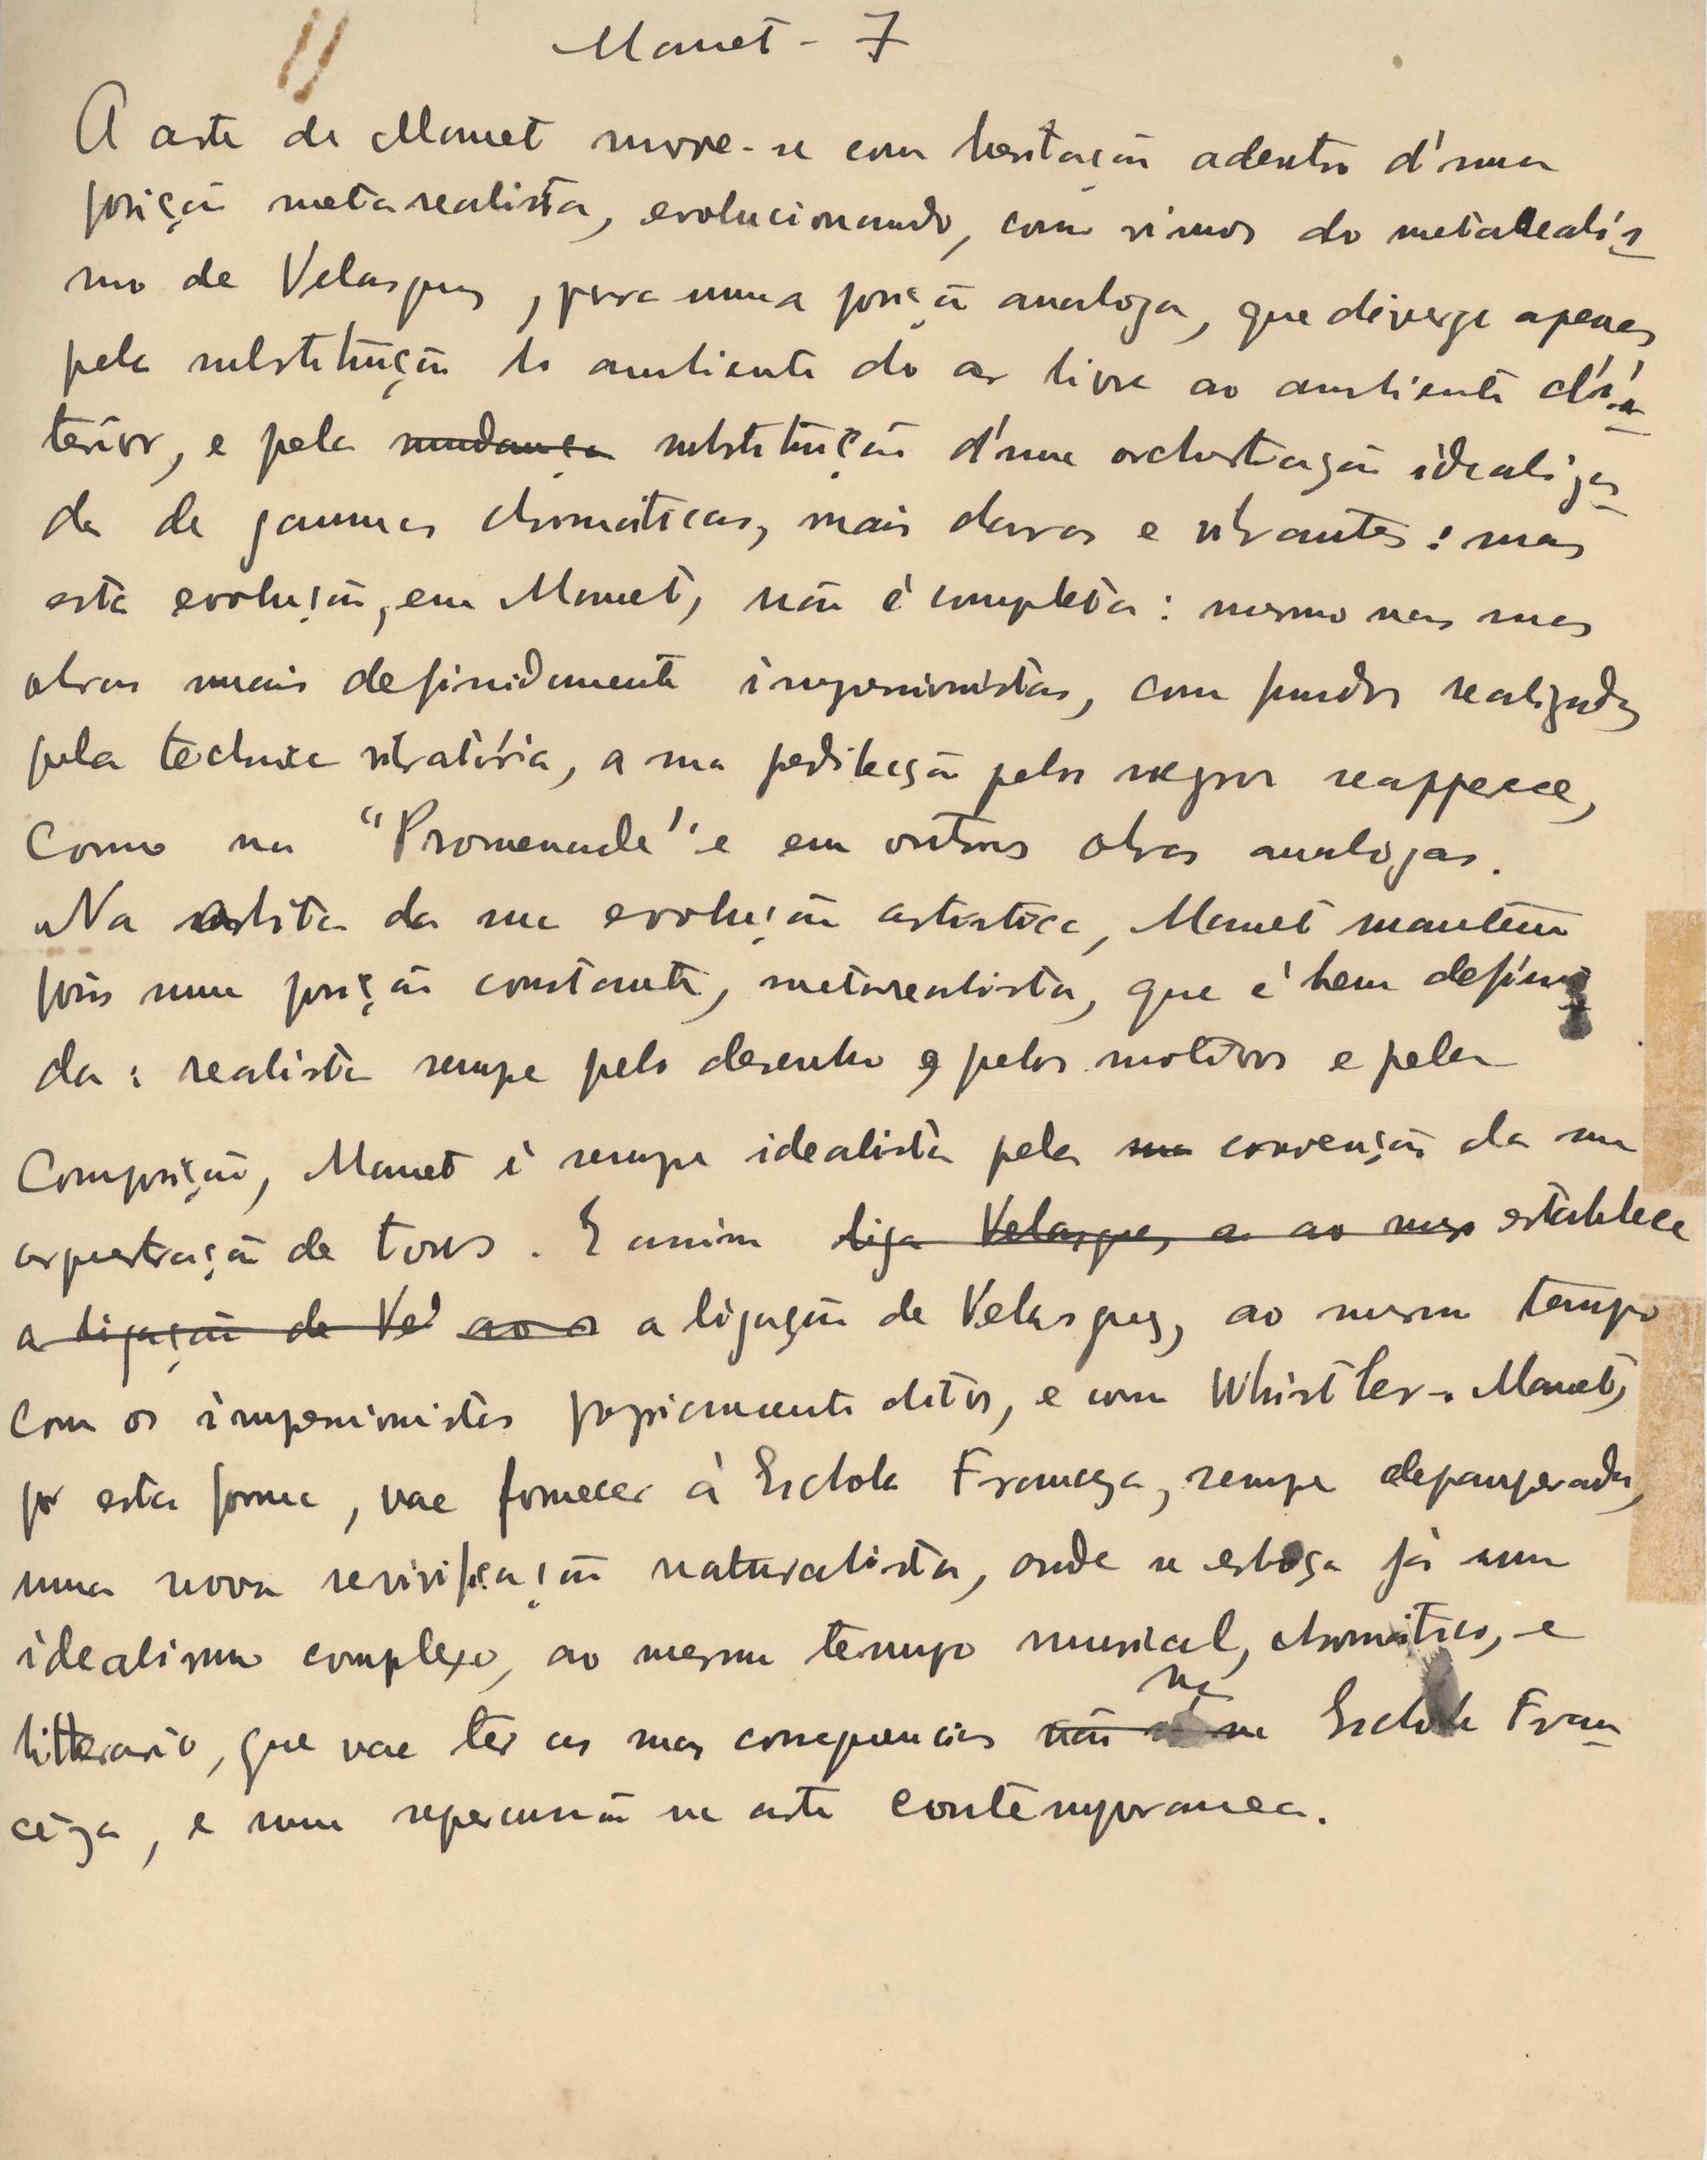 Manet - 7
A arte de Manet move-se com hesitação adentro d'uma
posição metarealista, evolucionando, como vimos do metarealis
mo de Velasquez, para uma posição analoga, que diverge apenas
pela substituição do ambiente do ar livre ao ambiente d'in
terior, e pela mudança substituição d'uma orchestração idealiza
da de gammas chromáticas, mais claras e vibrantes: mas
esta evolução, em Manet, não é completa: mesmo nas suas
obras mais definidamente impressionistas, com fundos realizados
pela technica vibratória, a sua predileção pelos negros reapperece,
como na "Promenade" e em outras obras analogas.
Na orbita da sua evolução artistica, Manet mantem
pois uma posição constante, metarealista, que é bem defini
da: realista sempre pelo desenho e pelos motivos e pela
composição, Manet é sempre idealista pela sua convenção da sua
orquestração de tons. E assim liga Velasquez a ao mesmo establece
a ligação de Vel ao a a ligação de Velasquez, ao mesmo tempo
com os impressionistas propriamente ditos, e com Whistler. Manet,
por esta forma, vae fornecer á Eschola Franceza, sempre depauperada,
uma nova revivificação naturalista, onde se esboça já um
idealismo complexo, ao mesmo tempo musical, chromatico, e
na
litterario, que vae ter as suas consequencias não na Eschola Fran
ceza, e uma repercussão na arte contemporanea.